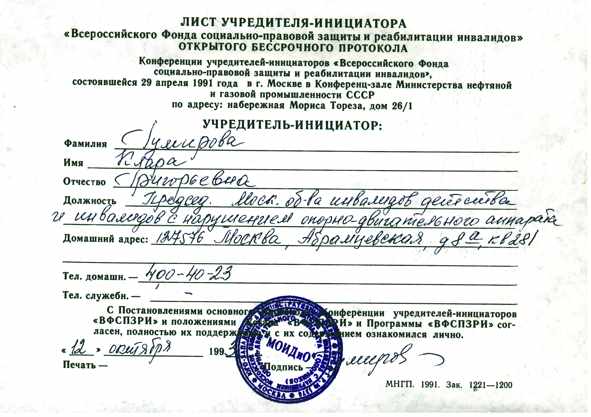 ЛИСТ УЧРЕДИТЕЛЯ-ИНИЦИАТОРА
«Всероссийского Фонда социально-правовой защиты и реабилитации инвалидов»
ОТКРЫТОГО БЕССРОЧНОГО ПРОТОКОЛА
Конференции учредителей-инициаторов «Всероссийского Фонда
социально-правовой защиты и реабилитации инвалидов»,
состоявшейся 29 апреля 1991 года в г. Москве в Конференц-зале Министерства нефтяной
и газовой промышленности СССР
по адресу: набережная Мориса Тореза, дом 26/1
УЧРЕДИТЕЛЬ-ИНИЦИАТОР:
Фамилия
Имя Клара
Отчество Григорьевна
Должность Председ. Моск. об-ва инвалидов детства
и инвалидов с нарушением опорно-двигательного аппарата
Домашний адрес: 127576 Москва, Абрамцевская, д 8а, кв 281
Тел. домашн. — 400-40-23
Тел. служебн. — –
С Постановлениями основного Конференции учредителей-инициаторов
«ВФСПЗРИ» и положениями «ВФСПЗРИ» и Программы «ВФСПЗРИ» сог-
ласен, полностью их поддерж с их содержанием ознакомился лично.
«12» октября 199
Печать — МОИДиОС Подпись
МНГП. 1991. Зак. 1221—1200